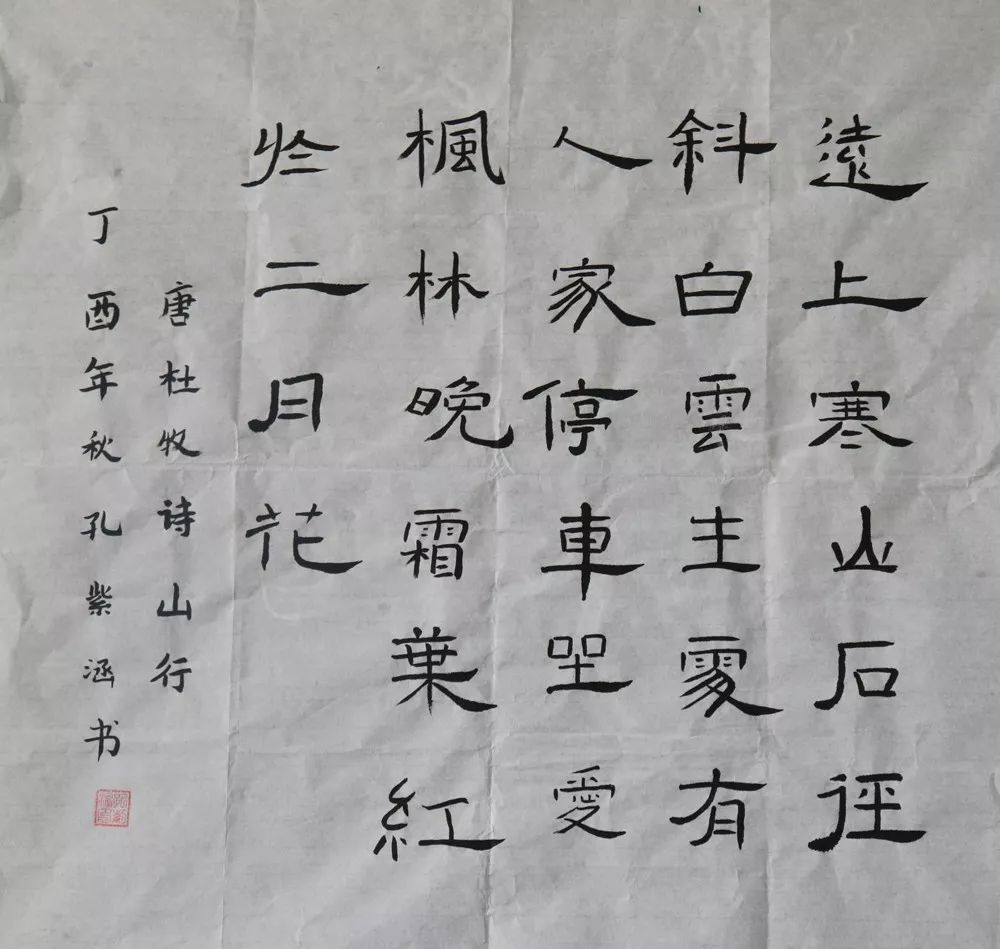 遠上寒山石徑
斜白雲生處有
人家停車坐愛
楓林晚霜葉紅
於二月花
唐杜牧诗山行
丁酉年秋孔紫涵书